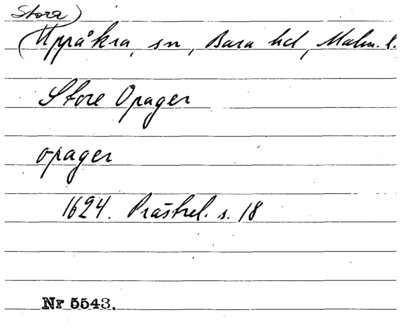 Stora)
(Uppåkra, sn, Bara hd, Malm. l.
Store Opager
opager
1624. Prästrel. s. 18
Nr 5543.